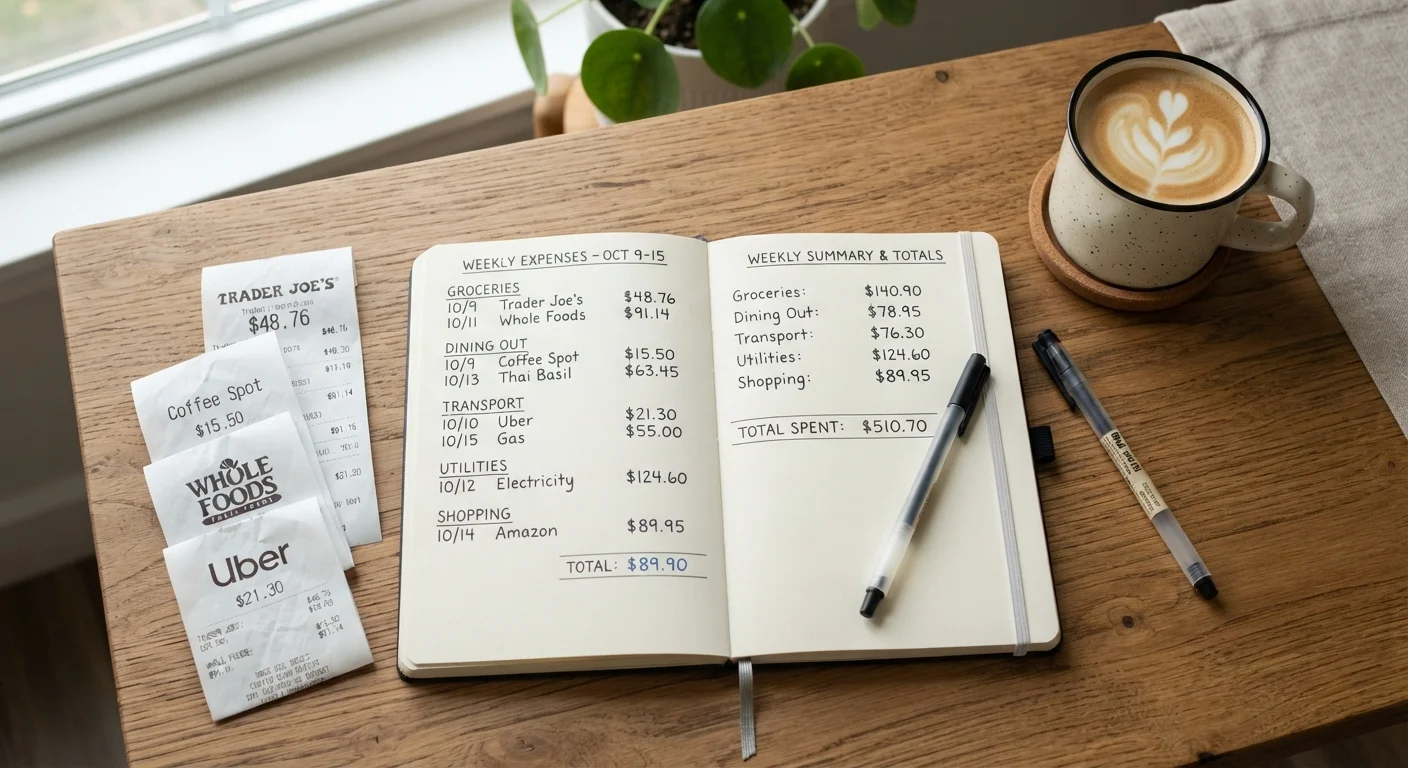 TRADER JOE'S
$48.76
Coffee Spot
$15.50
WHOLE
FOODS
Uber
$21.30
WEEKLY EXPENSES – OCT 9-15
GROCERIES
10/9 Trader Joe's $48.76
10/11 Whole Foods $91.14
DINING OUT
10/9 Coffee Spot $15.50
10/13 Thai Basil $63.45
TRANSPORT
10/10 Uber $21.30
10/15 Gas $55.00
UTILITIES
10/12 Electricity $124.60
SHOPPING
10/14 Amazon $89.95
TOTAL: $89.90
WEEKLY SUMMARY & TOTALS
Groceries: $140.90
Dining Out: $78.95
Transport: $76.30
Utilities: $124.60
Shopping: $89.95
TOTAL SPENT: $510.70